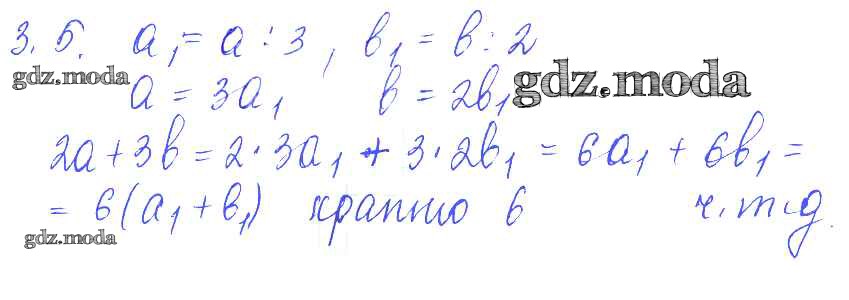 3.5. a₁ = a : 3, b₁ = b : 2
gdz.moda
a = 3a₁ b = 2b₁
gdz.moda
2a + 3b = 2 · 3a₁ + 3 · 2b₁ = 6a₁ + 6b₁ =
= 6(a₁ + b₁) кратно 6 ч.т.д.
gdz.moda